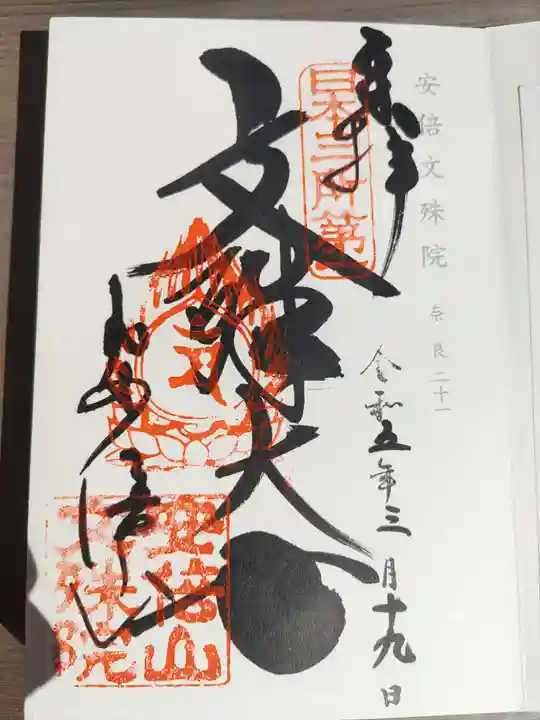 安倍文殊院 奈良二十一
奉拝
日本三所第一
令和五年三月十九日
文殊大士
安倍山
文殊院